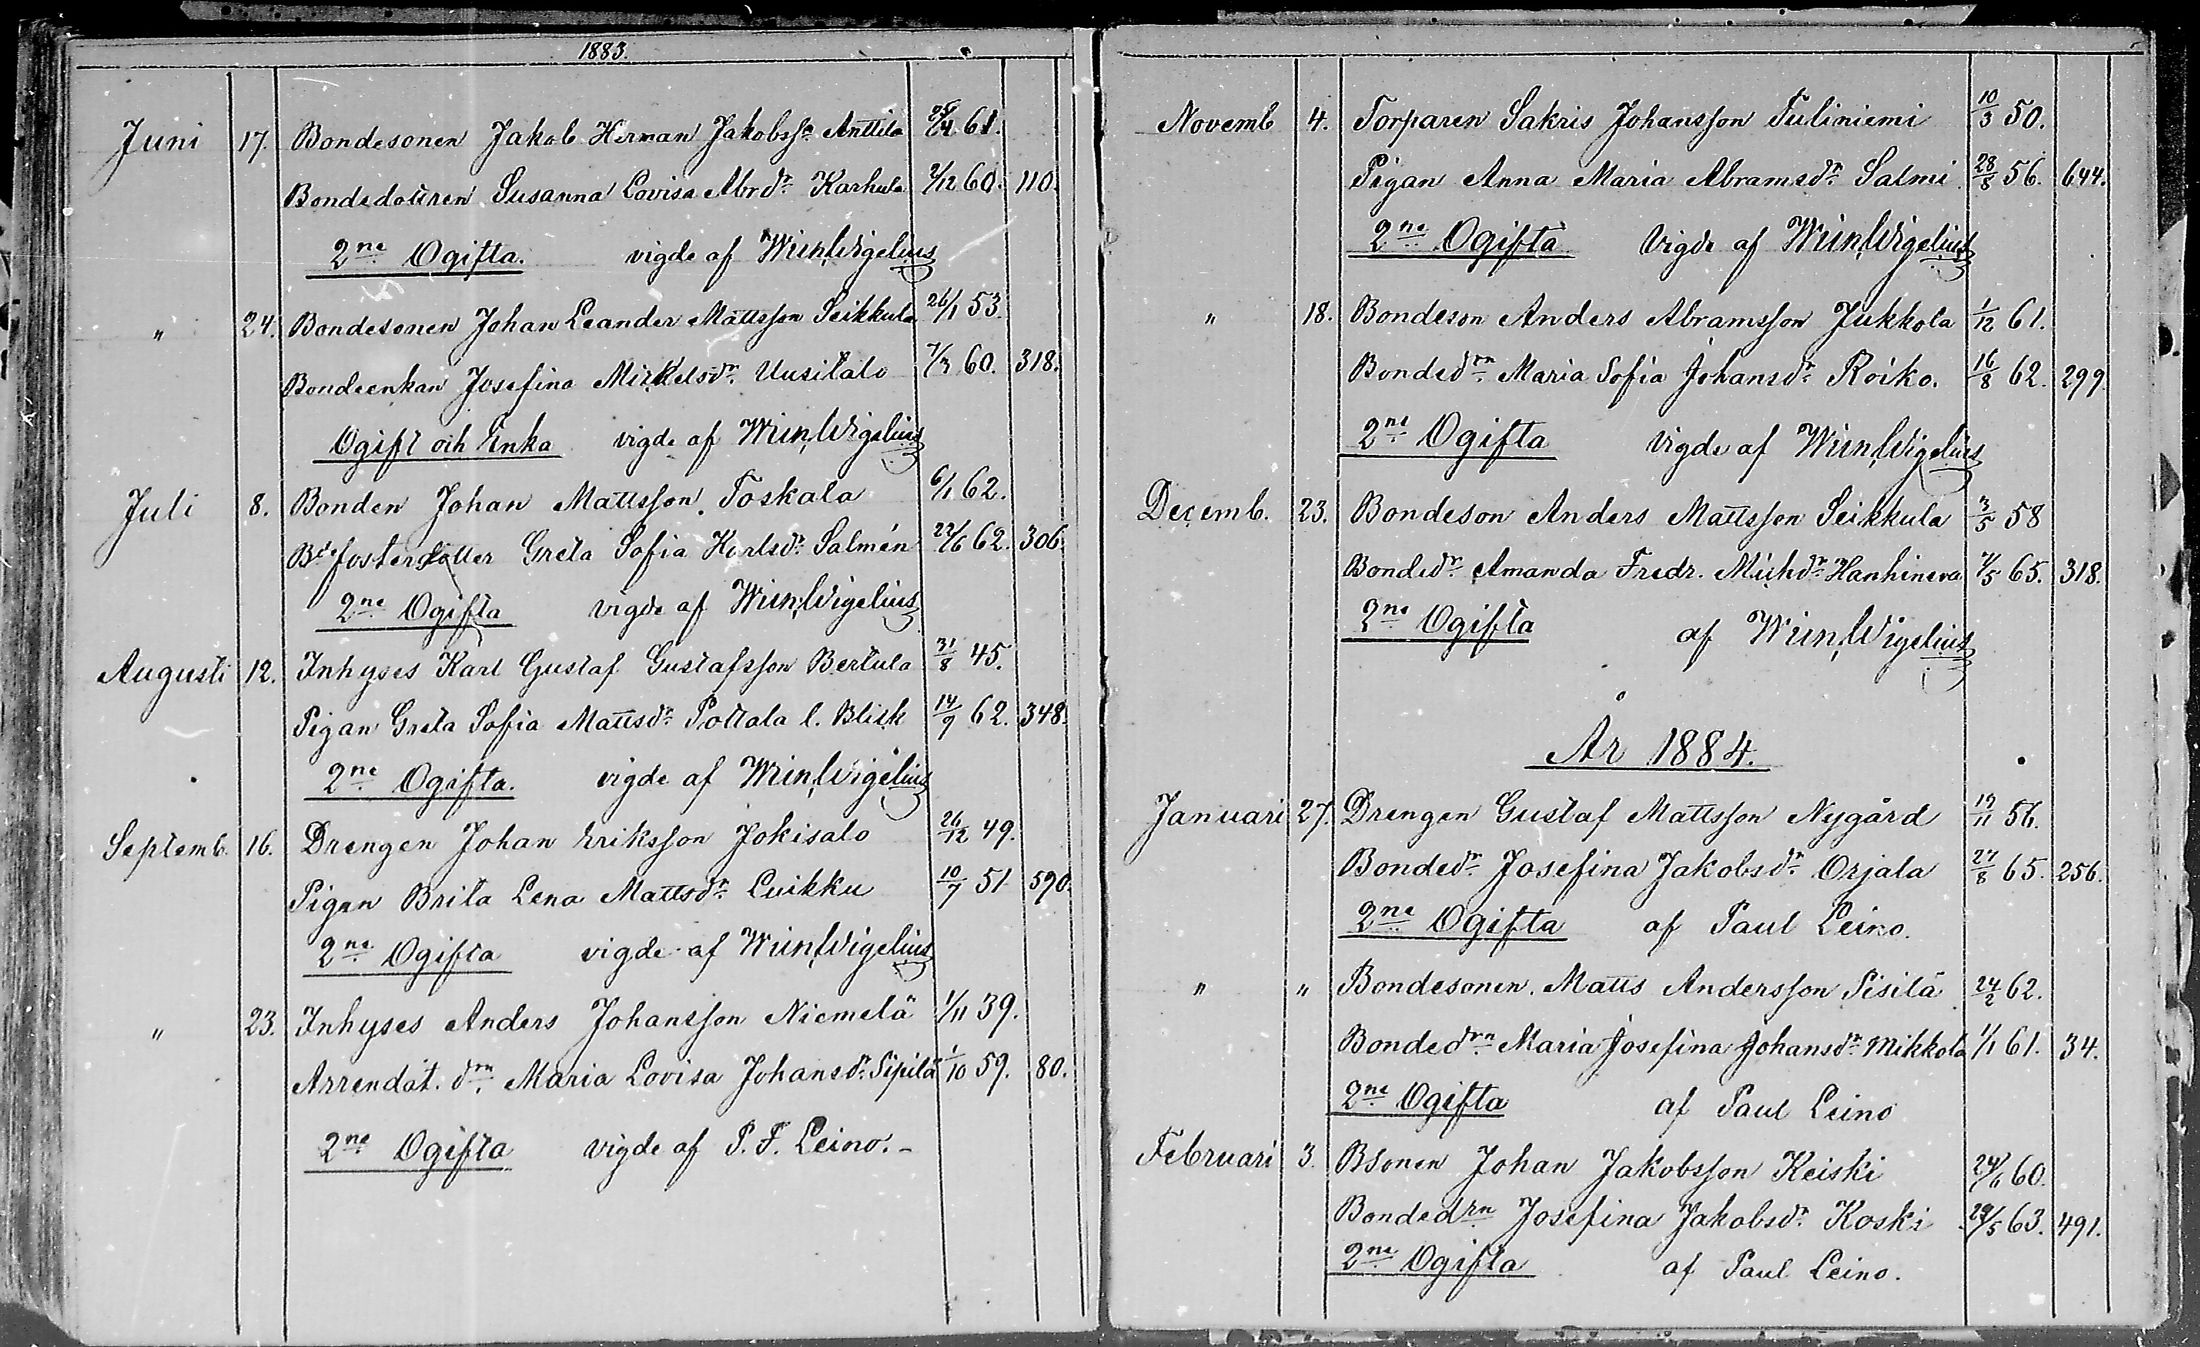 1883.
Juni 17. Bondesonen Jakob Herman Jakobss^n Anttila 61.
Bondedottren Susanna Lovisa Abrd^r Karhula 2/12 60. 110.
2^ne Ogifta. vigde af Wigelius
" 24. Bondesonen Johan Leander Mattsson Seikkula 26/1 53.
Bondeenkan Josefina Mickelsd^r Uusitalo 7/3 60. 318.
Ogift och Enka vigde af Wigelius
Juli 8. Bonden Johan Mattsson Toskala 6/1 62.
B^de fosterdotter Greta Sofia Karlsd^r Salmén 22/6 62. 306.
2^ne Ogifta vigde af Wigelius
Augusti 12. Inhyses Karl Gustaf Gustafsson Bertula 31/8 45.
Pigan Greta Sofia Mattsd^r Pottala l. Blick 14/9 62. 348.
2^ne Ogifta. vigde af Wigelius
Septemb. 16. Drengen Johan Eriksson Jokisalo 26/12 49.
Pigan Brita Lena Mattsd^r Luikku 10/7 51 590.
2^ne Ogifta vigde af Wigelius
" 23. Inhyses Anders Johansson Niemelä 1/11 39.
Arrendat. d^rn Maria Lovisa Johansd^r Sipilä 1/10 59. 80.
2^ne Ogifta vigde af P. F. Leino. -
Novemb 4. Torparen Sakris Johansson Tuliniemi 10/3 50.
Pigan Anna Maria Abramsd^r Salmi 28/8 56. 644.
2^ne Ogifta Vigde af Wigelius
" 18. Bondeson Anders Abramsson Jukkola 1/12 61.
Bonded^rn Maria Sofia Johansd^r Roiko. 16/8 62. 299.
2^ne Ogifta Vigde af Wigelius
Decemb. 23. Bondeson Anders Mattsson Seikkula 3/5 58
Bonded^r Amanda Fredr. Michd^r Hanhineva 7/5 65. 318.
2^ne Ogifta af Wigelius
År 1884.
Januari 27. Drengen Gustaf Mattsson Nygård 19/11 56.
Bonded^r Josefina Jakobsd^r Orjala 27/8 65. 256.
2^ne Ogifta af Paul Leino.
" " Bondesonen Matts Andersson Pisilä 24/2 62.
Bonded^rn Maria Josefina Johansd^r Mikkola 1/1 61. 34.
2^ne Ogifta af Paul Leino
Februari 3. Bsonen Johan Jakobsson Keiski 24/6 60.
Bonded^rn Josefina Jakobsd^r Koski 29/5 63. 491.
2^ne Ogifta af Paul Leino.